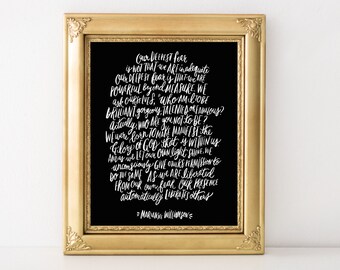 Our deepest fear
is not that we are inadequate
Our deepest fear is that we are
powerful beyond measure. We
ask ourselves, "who am I to be
brilliant, gorgeous, talented & fabulous?
Actually, who are you not to be?
We were born to make manifest the
Glory of God that is within us
And as we let our own light shine, we
unconsciously give others permission to
do the same. As we are liberated
from our own fear, our presence
automatically liberates others
Marianne Williamson